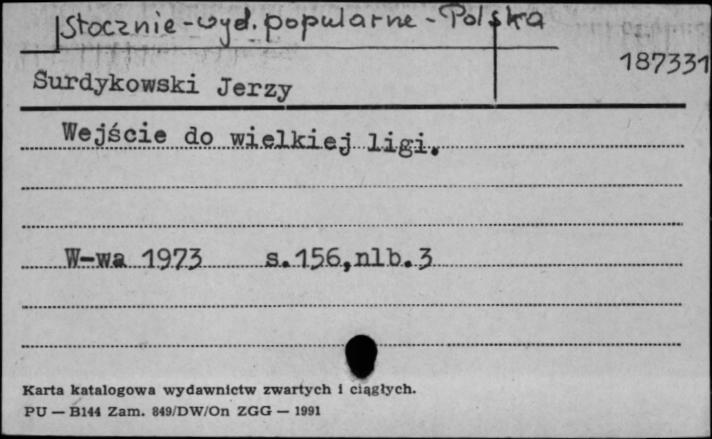 Stocznie - wyd. popularne - Polska
187331
Surdykowski Jerzy
Wejście do wielkiej ligi.
W-wa 1973 s.156,nlb.3
Karta katalogowa wydawnictw zwartych i ciągłych.
PU — B144 Zam. 849/DW/On ZGG — 1991